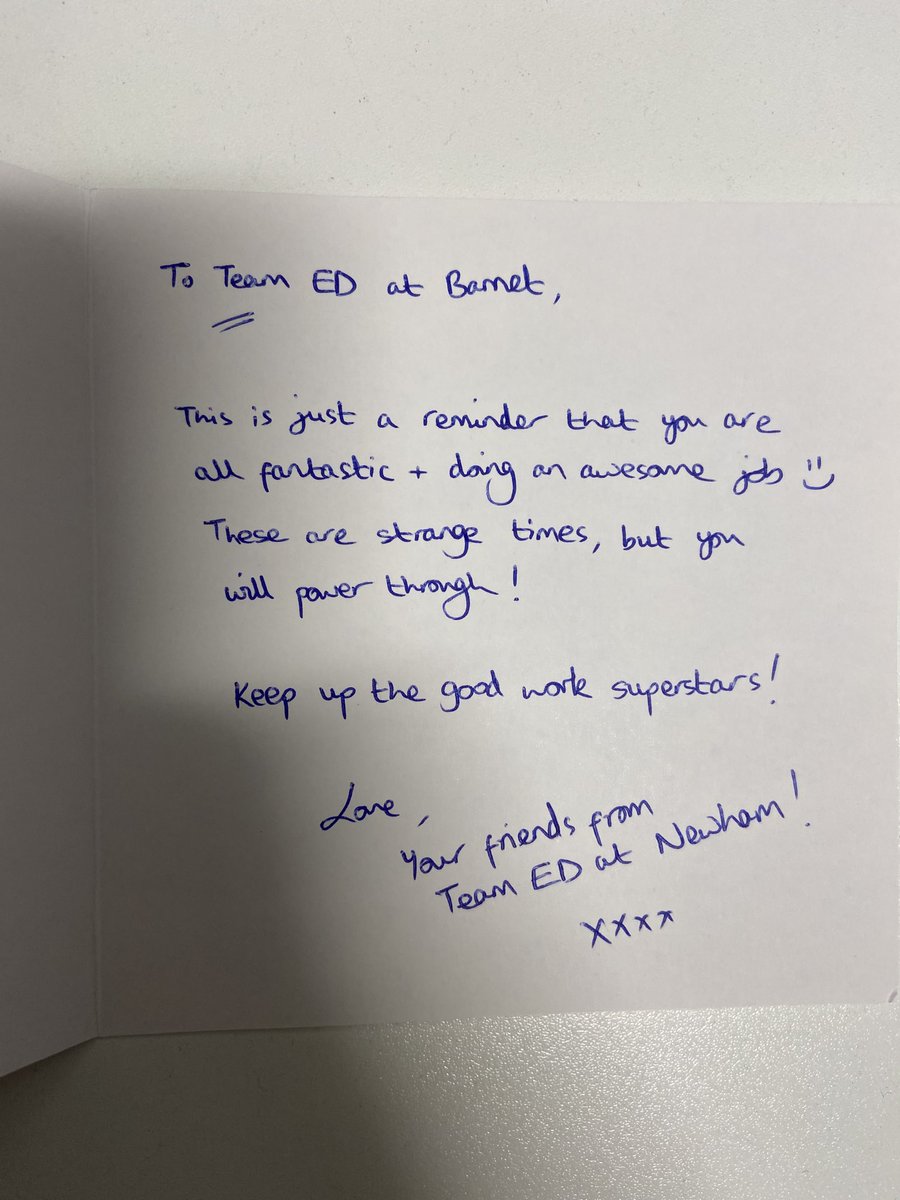 To Team ED at Barnet,
This is just a reminder that you are
all fantastic + doing an awesome job :)
These are strange times, but you
will power through!
Keep up the good work superstars!
Love,
Your friends from
Team ED at Newham!
xxxx